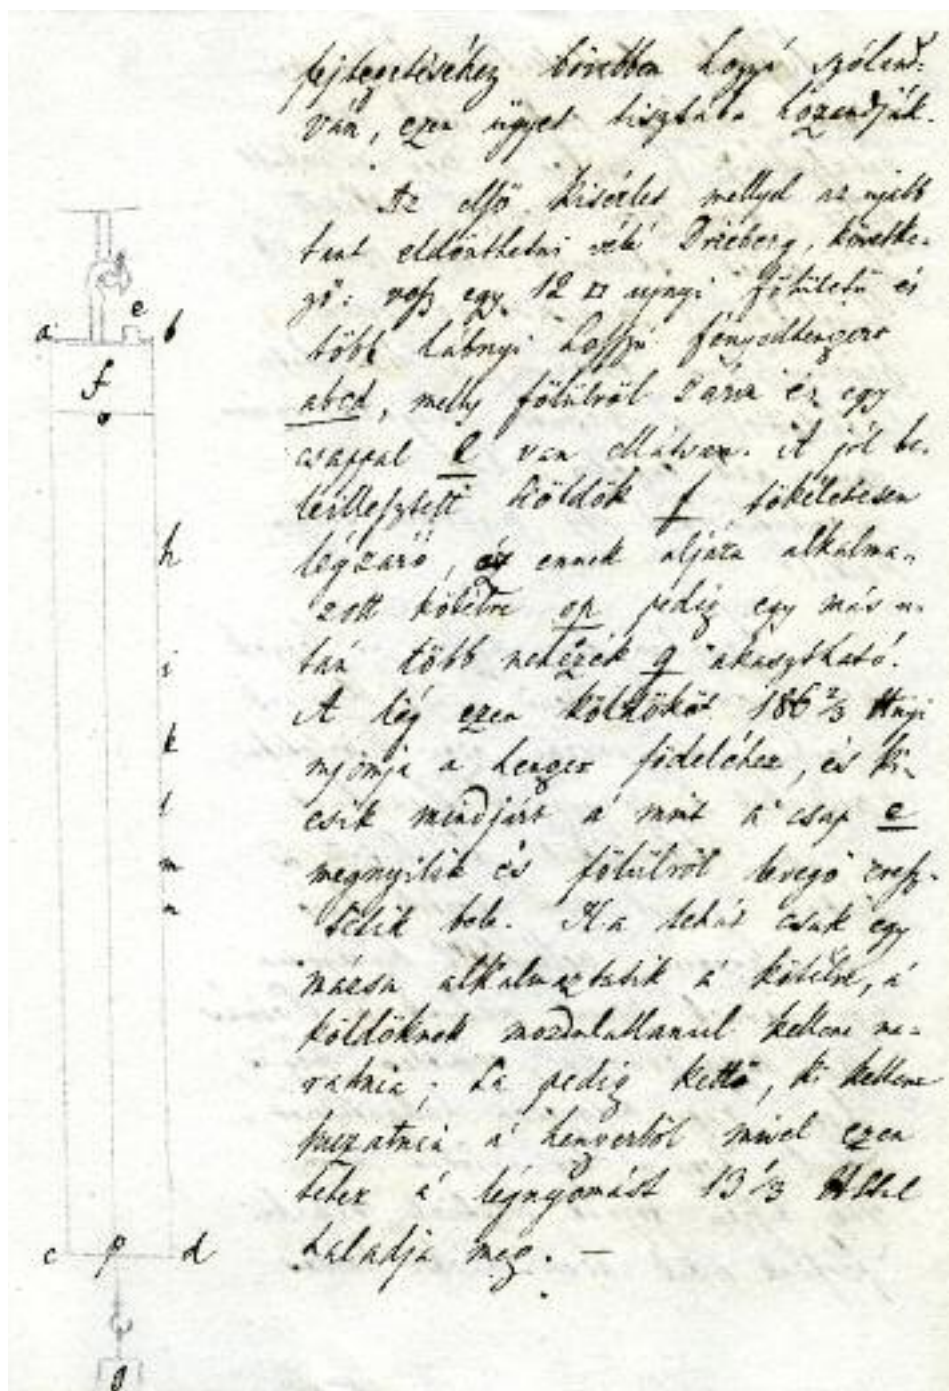 fejtegetéséhez bővebben hozzá szóland:
ván, ezen ügyet tisztába hozandják.
Az első kisérlet mellyel az ujabb
tant eldönthetni véli Drieberg, követke-
ző: vesz egy 12 □ ujnyi fölületü és
több lábnyi hosszu fényedhengert
abcd, melly fölülről zárva és egy
csappal e van ellátva. A jól be-
leillesztett köldök f tökéletesen
légzáró, és ennek aljára alkalma-
zott kötélre op pedig egy más u-
tán több nehézék q akasztható.
A lég ezen köldököt 186 2/3 ℔nyi
nyomja a henger fedeléhez, és ki-
csik mindjárt a mint a' csap e
megnyilik és fölülről levegő eresz-
tetik bele. Ha tehát csak egy
mázsa alkalmaztatik a' kötélre, a'
köldöknek mozdulatlanul kellene ma-
radnia; ha pedig kettő, ki kellene
huzatnia a' hengerből mivel ezen
teher a' légnyomást 13 1/3 ℔al
haladja meg. —
a
e
b
f
o
h
i
k
l
m
n
c
p
d
q